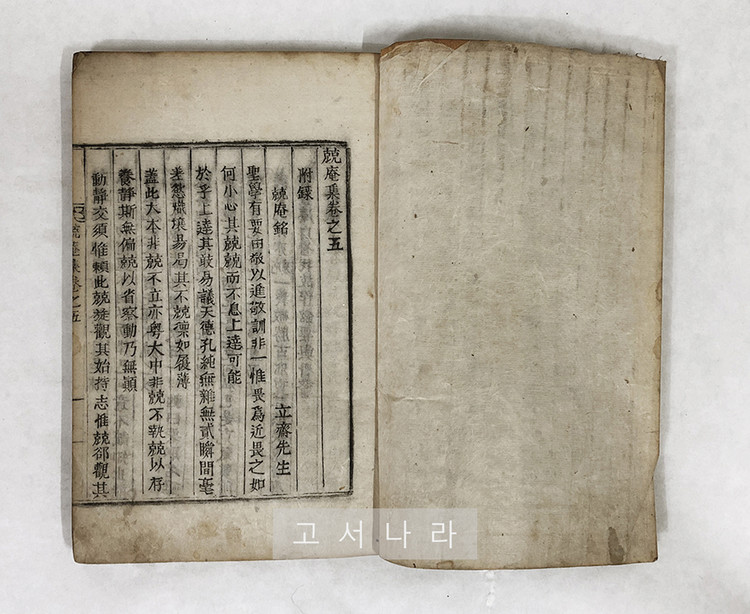 兢庵集卷之五
附錄
兢庵銘 立齋先生
聖學有要由敬以進敬訓非一惟畏爲近畏之如
何小心其兢兢而不息上達可能
於乎上達其敢易議天德孔純無雜無貳瞬間毫
差愆熾壞易局其不兢懍如履薄
盖此大本非兢不立亦粤大中非兢不執兢以存
養靜斯無偏兢以省察動乃無顚
動靜交須惟賴此兢旋觀其始持志惟兢郤觀其
兢庵集卷之五
一
고서나라